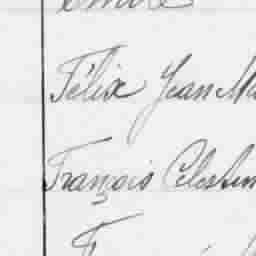 Félix Jean Ma
François Celestin